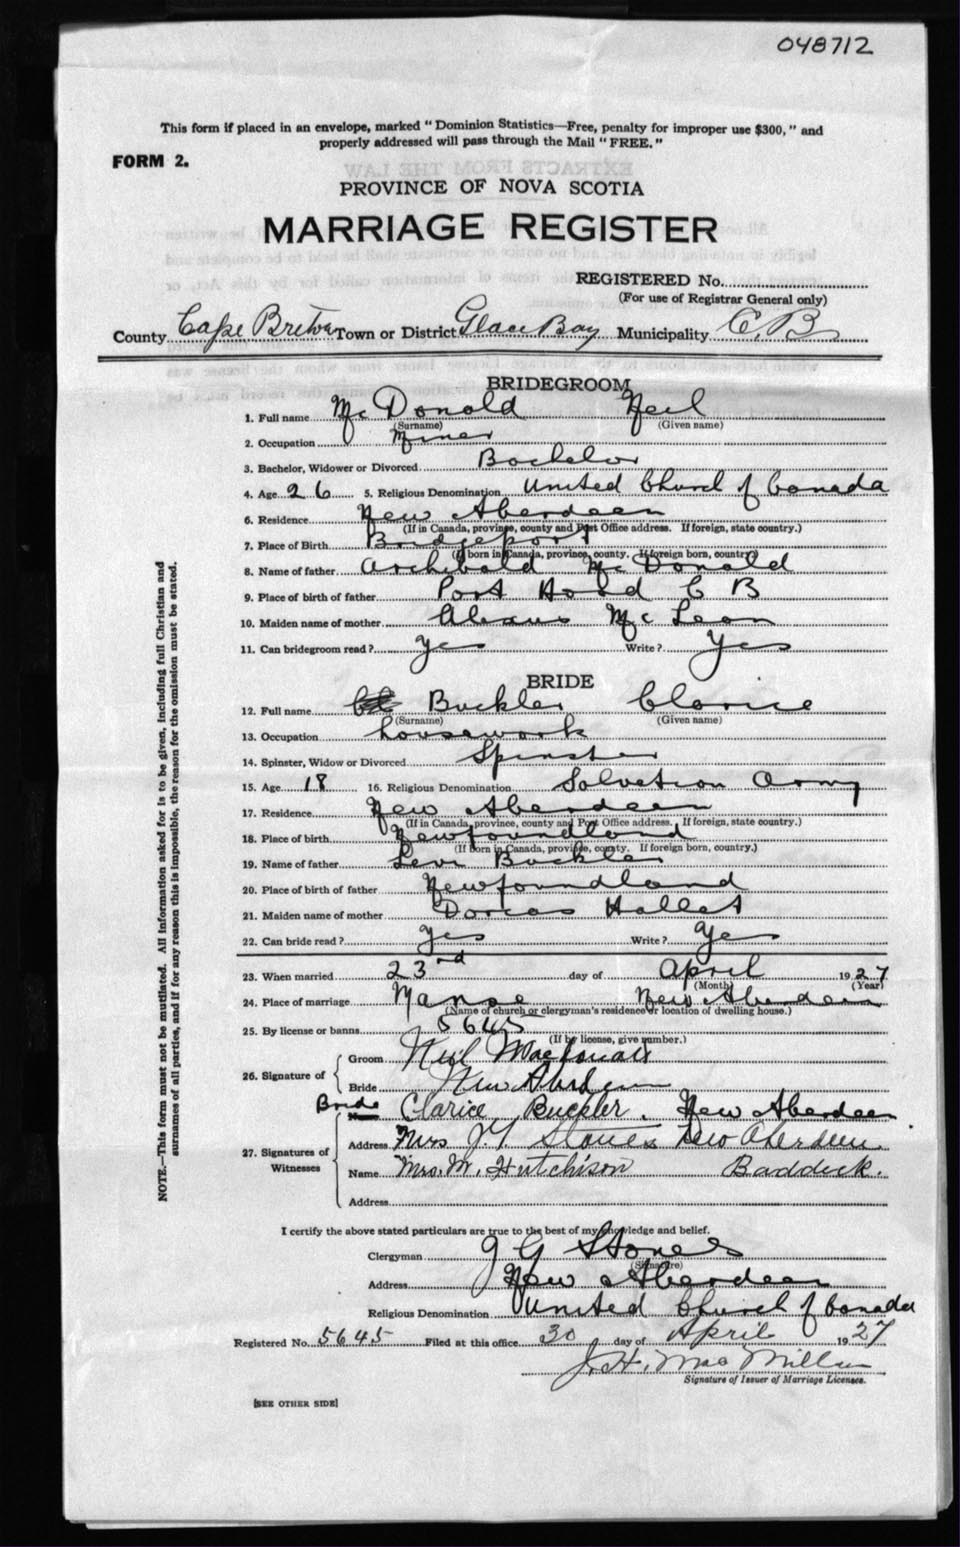 048712
This form if placed in an envelope, marked "Dominion Statistics—Free, penalty for improper use $300," and
properly addressed will pass through the Mail "FREE."
FORM 2.
EXTRACTS FROM THE LAW
PROVINCE OF NOVA SCOTIA
MARRIAGE REGISTER
REGISTERED No.
(For use of Registrar General only)
County Cape Breton Town or District Glace Bay Municipality C. B
BRIDEGROOM
1. Full name Mc Donald Neil
(Surname) (Given name)
2. Occupation Miner
3. Bachelor, Widower or Divorced Bachelor
4. Age 26 5. Religious Denomination United Church of Canada
6. Residence New Aberdeen
(If in Canada, province, county and Post Office address. If foreign, state country.)
7. Place of Birth Bridgeport
(If born in Canada, province, county. If foreign born, country.)
8. Name of father Archibald Mc Donald
9. Place of birth of father Port Hood C B
10. Maiden name of mother Mc Lean
11. Can bridegroom read? Yes Write? Yes
BRIDE
12. Full name Buckler Clarice
(Surname) (Given name)
13. Occupation housework
14. Spinster, Widow or Divorced Spinster
15. Age 18 16. Religious Denomination Salvation Army
17. Residence New Aberdeen
(If in Canada, province, county and Post Office address. If foreign, state country.)
18. Place of birth Newfoundland
(If Born in Canada, province, county. If foreign born, country.)
19. Name of father Levi Buckler
20. Place of birth of father Newfoundland
21. Maiden name of mother Dorcas Hallet
22. Can bride read? Yes Write? Yes
23. When married 23rd day of April 1927
(Month) (Year)
24. Place of marriage Manse New Aberdeen
(Name of church or clergyman's residence or location of dwelling house.)
25. By license or banns 5645
(If by license, give number.)
26. Signature of
Groom Neil MacDonald
Bride New Aberdeen
Bride Clarice Buckler. New Aberdeen
27. Signatures of Witnesses
Address Mrs J. G. Stones New Aberdeen
Name Mrs. M. Hutchison Baddeck.
Address
I certify the above stated particulars are true to the best of my knowledge and belief.
Clergyman J G Stones
(Signature)
Address New Aberdeen
Religious Denomination United Church of Canada
Registered No. 5645 Filed at this office 30 day of April 1927
J. H. Mac Millan
Signature of Issuer of Marriage Licenses.
[SEE OTHER SIDE]
NOTE.—This form must not be mutilated. All information asked for is to be given, including full Christian and
surnames of all parties, and if for any reason this is impossible, the reason for the omission must be stated.